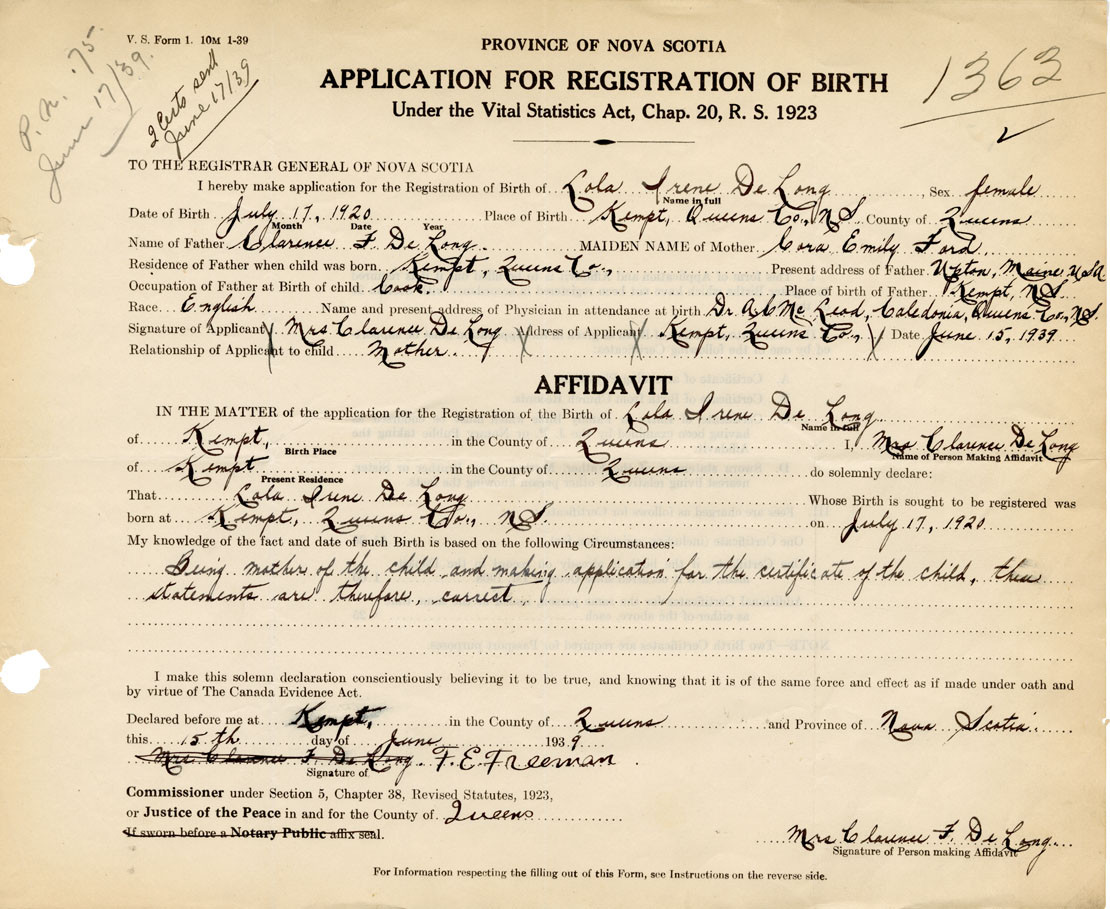 V. S. Form 1. 10M 1-39
P. N. .75
June 17/39.
2 Certs sent
June 17/39
PROVINCE OF NOVA SCOTIA
APPLICATION FOR REGISTRATION OF BIRTH
Under the Vital Statistics Act, Chap. 20, R. S. 1923
1363
TO THE REGISTRAR GENERAL OF NOVA SCOTIA
I hereby make application for the Registration of Birth of Lola Irene De Long, Sex female
Name in full
Date of Birth July 17, 1920 Place of Birth Kempt, Queens Co., N.S. County of Queens
Month Date Year
Name of Father Clarence F. De Long MAIDEN NAME of Mother Cora Emily Ford
Residence of Father when child was born Kempt, Queens Co., Present address of Father Upton, Maine USA
Occupation of Father at Birth of child Cook. Place of birth of Father Kempt, N.S.
Race English Name and present address of Physician in attendance at birth Dr. A C Mc Leod, Caledonia, Queens Co., N.S.
Signature of Applicant Mrs Clarence De Long Address of Applicant Kempt, Queens Co., Date June 15, 1939
Relationship of Applicant to child Mother
AFFIDAVIT
IN THE MATTER of the application for the Registration of the Birth of Lola Irene De Long
Name in full
of Kempt, in the County of Queens I, Mrs Clarence De Long
Birth Place Name of Person Making Affidavit
of Kempt in the County of Queens do solemnly declare:
Present Residence
That Lola Irene De Long Whose Birth is sought to be registered was
born at Kempt, Queens Co., N.S. on July 17, 1920
My knowledge of the fact and date of such Birth is based on the following Circumstances:
Being mother of the child and making application for the certificate of the child, these
statements are therefore, correct.
I make this solemn declaration conscientiously believing it to be true, and knowing that it is of the same force and effect as if made under oath and
by virtue of The Canada Evidence Act.
Declared before me at Kempt, in the County of Queens and Province of Nova Scotia
this 15th day of June 1939
Mrs Clarence F. De Long F. E. Freeman
Signature of
Commissioner under Section 5, Chapter 38, Revised Statutes, 1923,
or Justice of the Peace in and for the County of Queens
If sworn before a Notary Public affix seal.
Mrs Clarence F. De Long
Signature of Person making Affidavit
For Information respecting the filling out of this Form, see Instructions on the reverse side.